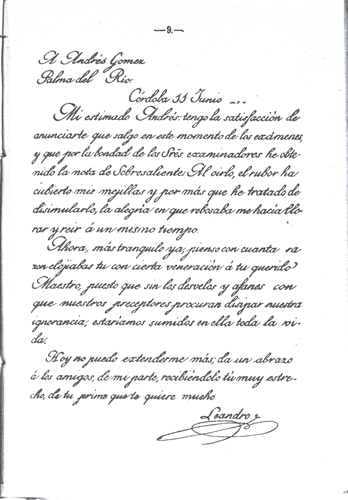 —9.—
A Andrés Gomez
Palma del Rio.
Córdoba 11 Junio ....
Mi estimado Andrés: tengo la satisfacción de
anunciarte que salgo en este momento de los exámenes,
y que por la bondad de los Srēs examinadores he obte-
nido la nota de Sobresaliente. Al oirlo, el rubor ha
cubierto mis mejillas y por más que he tratado de
disimularlo, la alegria en que rebosaba me hacia llo-
rar y reir á un mismo tiempo.
Ahora, más tranquilo ya, pienso con cuanta ra-
zon elojiabas tu con cierta veneración á tu querido
Maestro, puesto que sin los desvelos y afanes con
que nuestros preceptores procuran disipar nuestra
ignorancia; estariamos sumidos en ella toda la vi-
da.
Hoy no puedo extenderme más; da un abrazo
á los amigos, de mi parte, recibiéndolo tú muy estre-
cho, de tu primo que te quiere mucho
Leandro